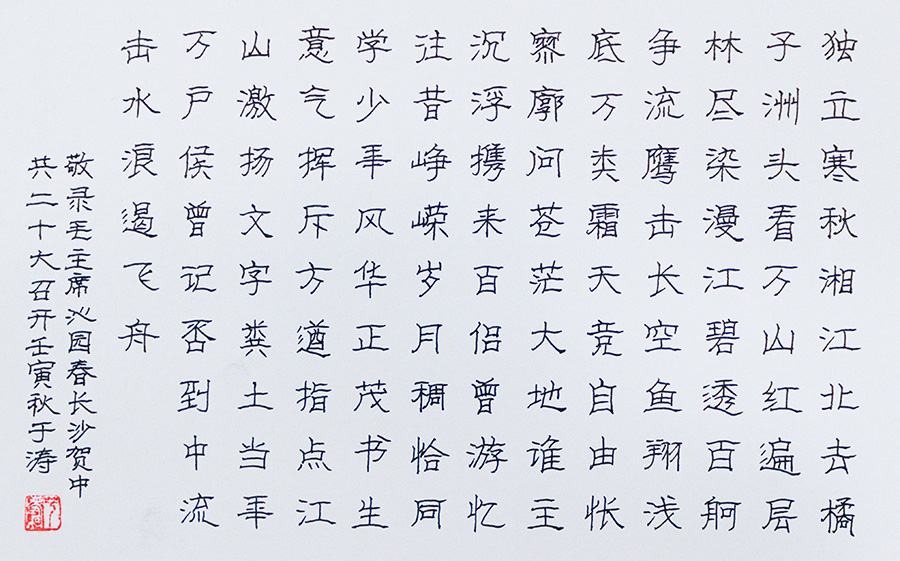 独立寒秋湘江北去橘
子洲头看万山红遍层
林尽染漫江碧透百舸
争流鹰击长空鱼翔浅
底万类霜天竞自由怅
寥廓问苍茫大地谁主
沉浮携来百侣曾游忆
往昔峥嵘岁月稠恰同
学少年风华正茂书生
意气挥斥方遒指点江
山激扬文字粪土当年
万户侯曾记否到中流
击水浪遏飞舟
敬录毛主席沁园春长沙贺中
共二十大召开壬寅秋于涛